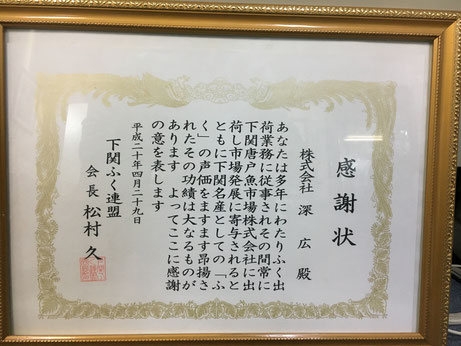 感謝状
株式会社 深広 殿
あなたは多年にわたりふく出
荷業務に従事されその間常に
下関唐戸魚市場株式会社に出
荷し市場発展に寄与されると
ともに下関名産としての「ふ
く」の声価をますます昂揚さ
れたその功績は大なるものが
あります よってここに感謝
の意を表します
平成二十年四月二十九日
下関ふく連盟
会長 松村 久